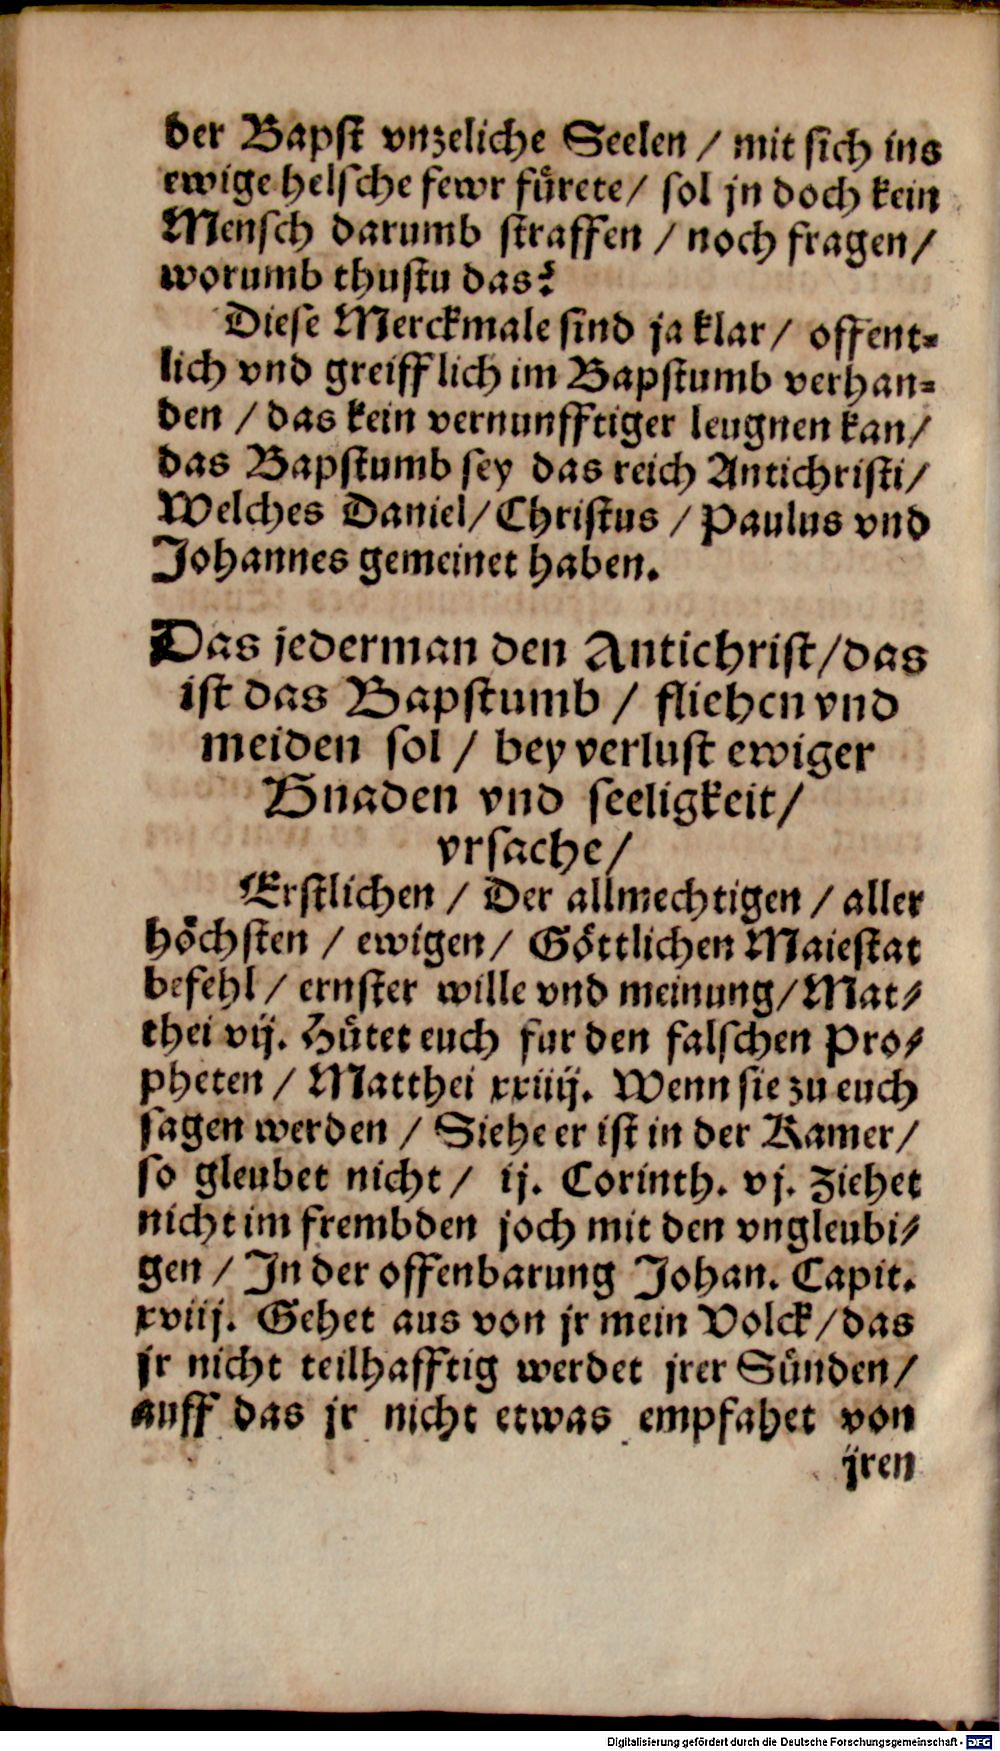 der Bapst vnzeliche Seelen / mit sich ins
ewige helsche fewr fuͤrete / sol jn doch kein
Mensch darumb straffen / noch fragen /
worumb thustu das?
Diese Merckmale sind ja klar / offent-
lich vnd greifflich im Bapstumb verhan-
den / das kein vernunfftiger leugnen kan /
das Bapstumb sey das reich Antichristi /
Welches Daniel / Christus / Paulus vnd
Johannes gemeinet haben.
Das jederman den Antichrist / das
ist das Bapstumb / fliehen vnd
meiden sol / bey verlust ewiger
Gnaden vnd seeligkeit /
vrsache /
Erstlichen / Der allmechtigen / aller
hoͤchsten / ewigen / Goͤttlichen Maiestat
befehl / ernster wille vnd meinung / Mat-
thei vij. Huͤtet euch fur den falschen Pro-
pheten / Matthei xxiiij. Wenn sie zu euch
sagen werden / Siehe er ist in der Kamer /
so gleubet nicht / ij. Corinth. vj. Ziehet
nicht im frembden joch mit den vngleubi-
gen / In der offenbarung Johan. Capit.
xviij. Gehet aus von jr mein Volck / das
jr nicht teilhafftig werdet jrer Suͤnden /
auff das jr nicht etwas empfahet von
jren
Digitalisierung gefördert durch die Deutsche Forschungsgemeinschaft - DFG